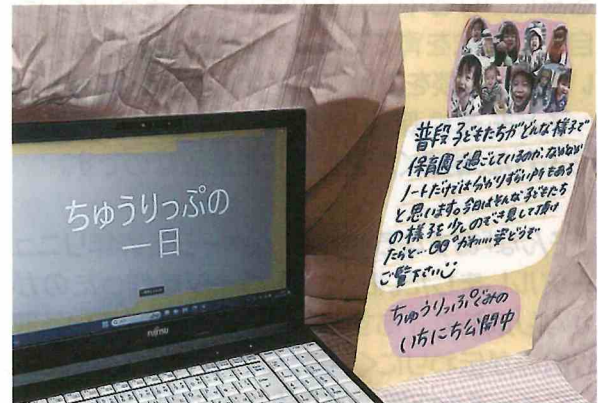 ちゅうりっぷの
一日
FUJITSU
普段子どもたちがどんな様子で
保育園で過ごしているのか、なかなか
ノートだけでは分かりずらい所もある
と思います。今日はそんな子どもたち
の様子を少しのぞき見して頂け
たらと…かわいい姿どうぞ
ご覧下さい
ちゅうりっぷぐみの
いちにち公開中